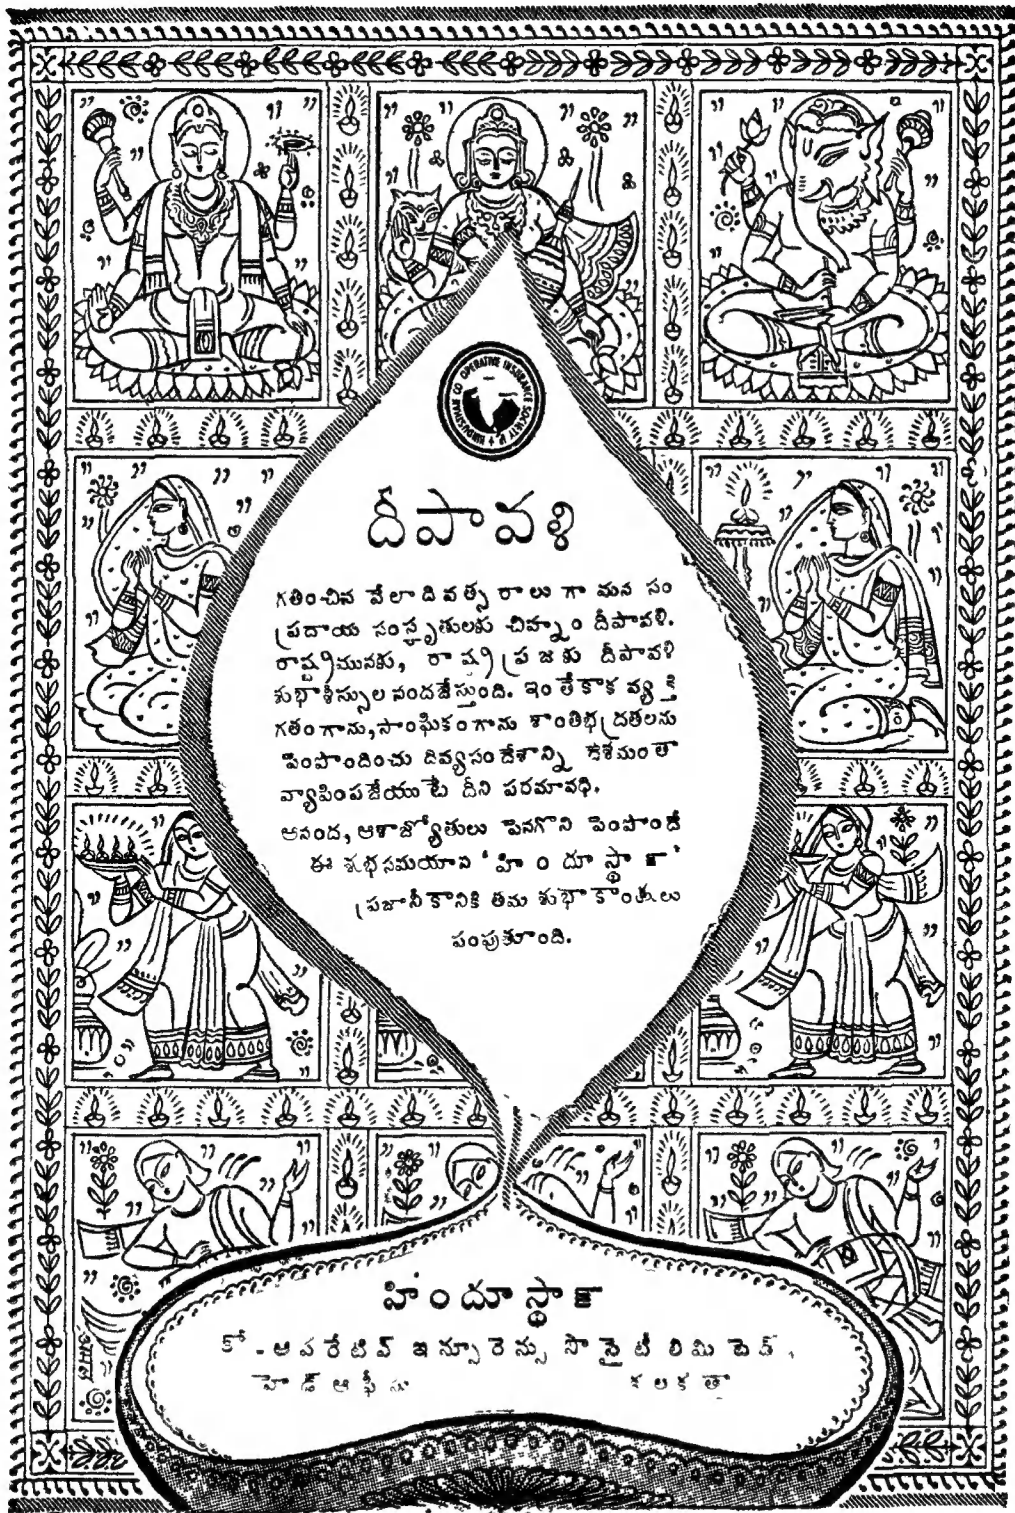 HINDUSTHAN CO OPERATIVE INSURANCE SOCIETY
దీపావళి
గతించిన వేలాదివత్సరాలుగా మన సం
ప్రదాయ సంస్కృతులకు చిహ్నం దీపావళి.
రాష్ట్రమునకు, రాష్ట్రప్రజకు దీపావళి
శుభాశీస్సుల నందజేస్తుంది. ఇంతేకాక వ్యక్తి
గతంగాను, సాంఘికంగాను శాంతిభద్రతలను
పెంపొందించు దివ్యసందేశాన్ని దేశమంతా
వ్యాపింపజేయుటే దీని పరమావధి.
ఆనంద, ఆశాజ్యోతులు పెనగొని పెంపొందే
ఈ శుభసమయాన 'హిందూస్థాన్'
ప్రజానీకానికి తమ శుభాకాంక్షలు
పంపుతూంది.
హిందూస్థాన్
కో-ఆపరేటివ్ ఇన్సూరెన్సు సొసైటీ లిమిటెడ్,
హెడ్ ఆఫీసు కలకత్తా